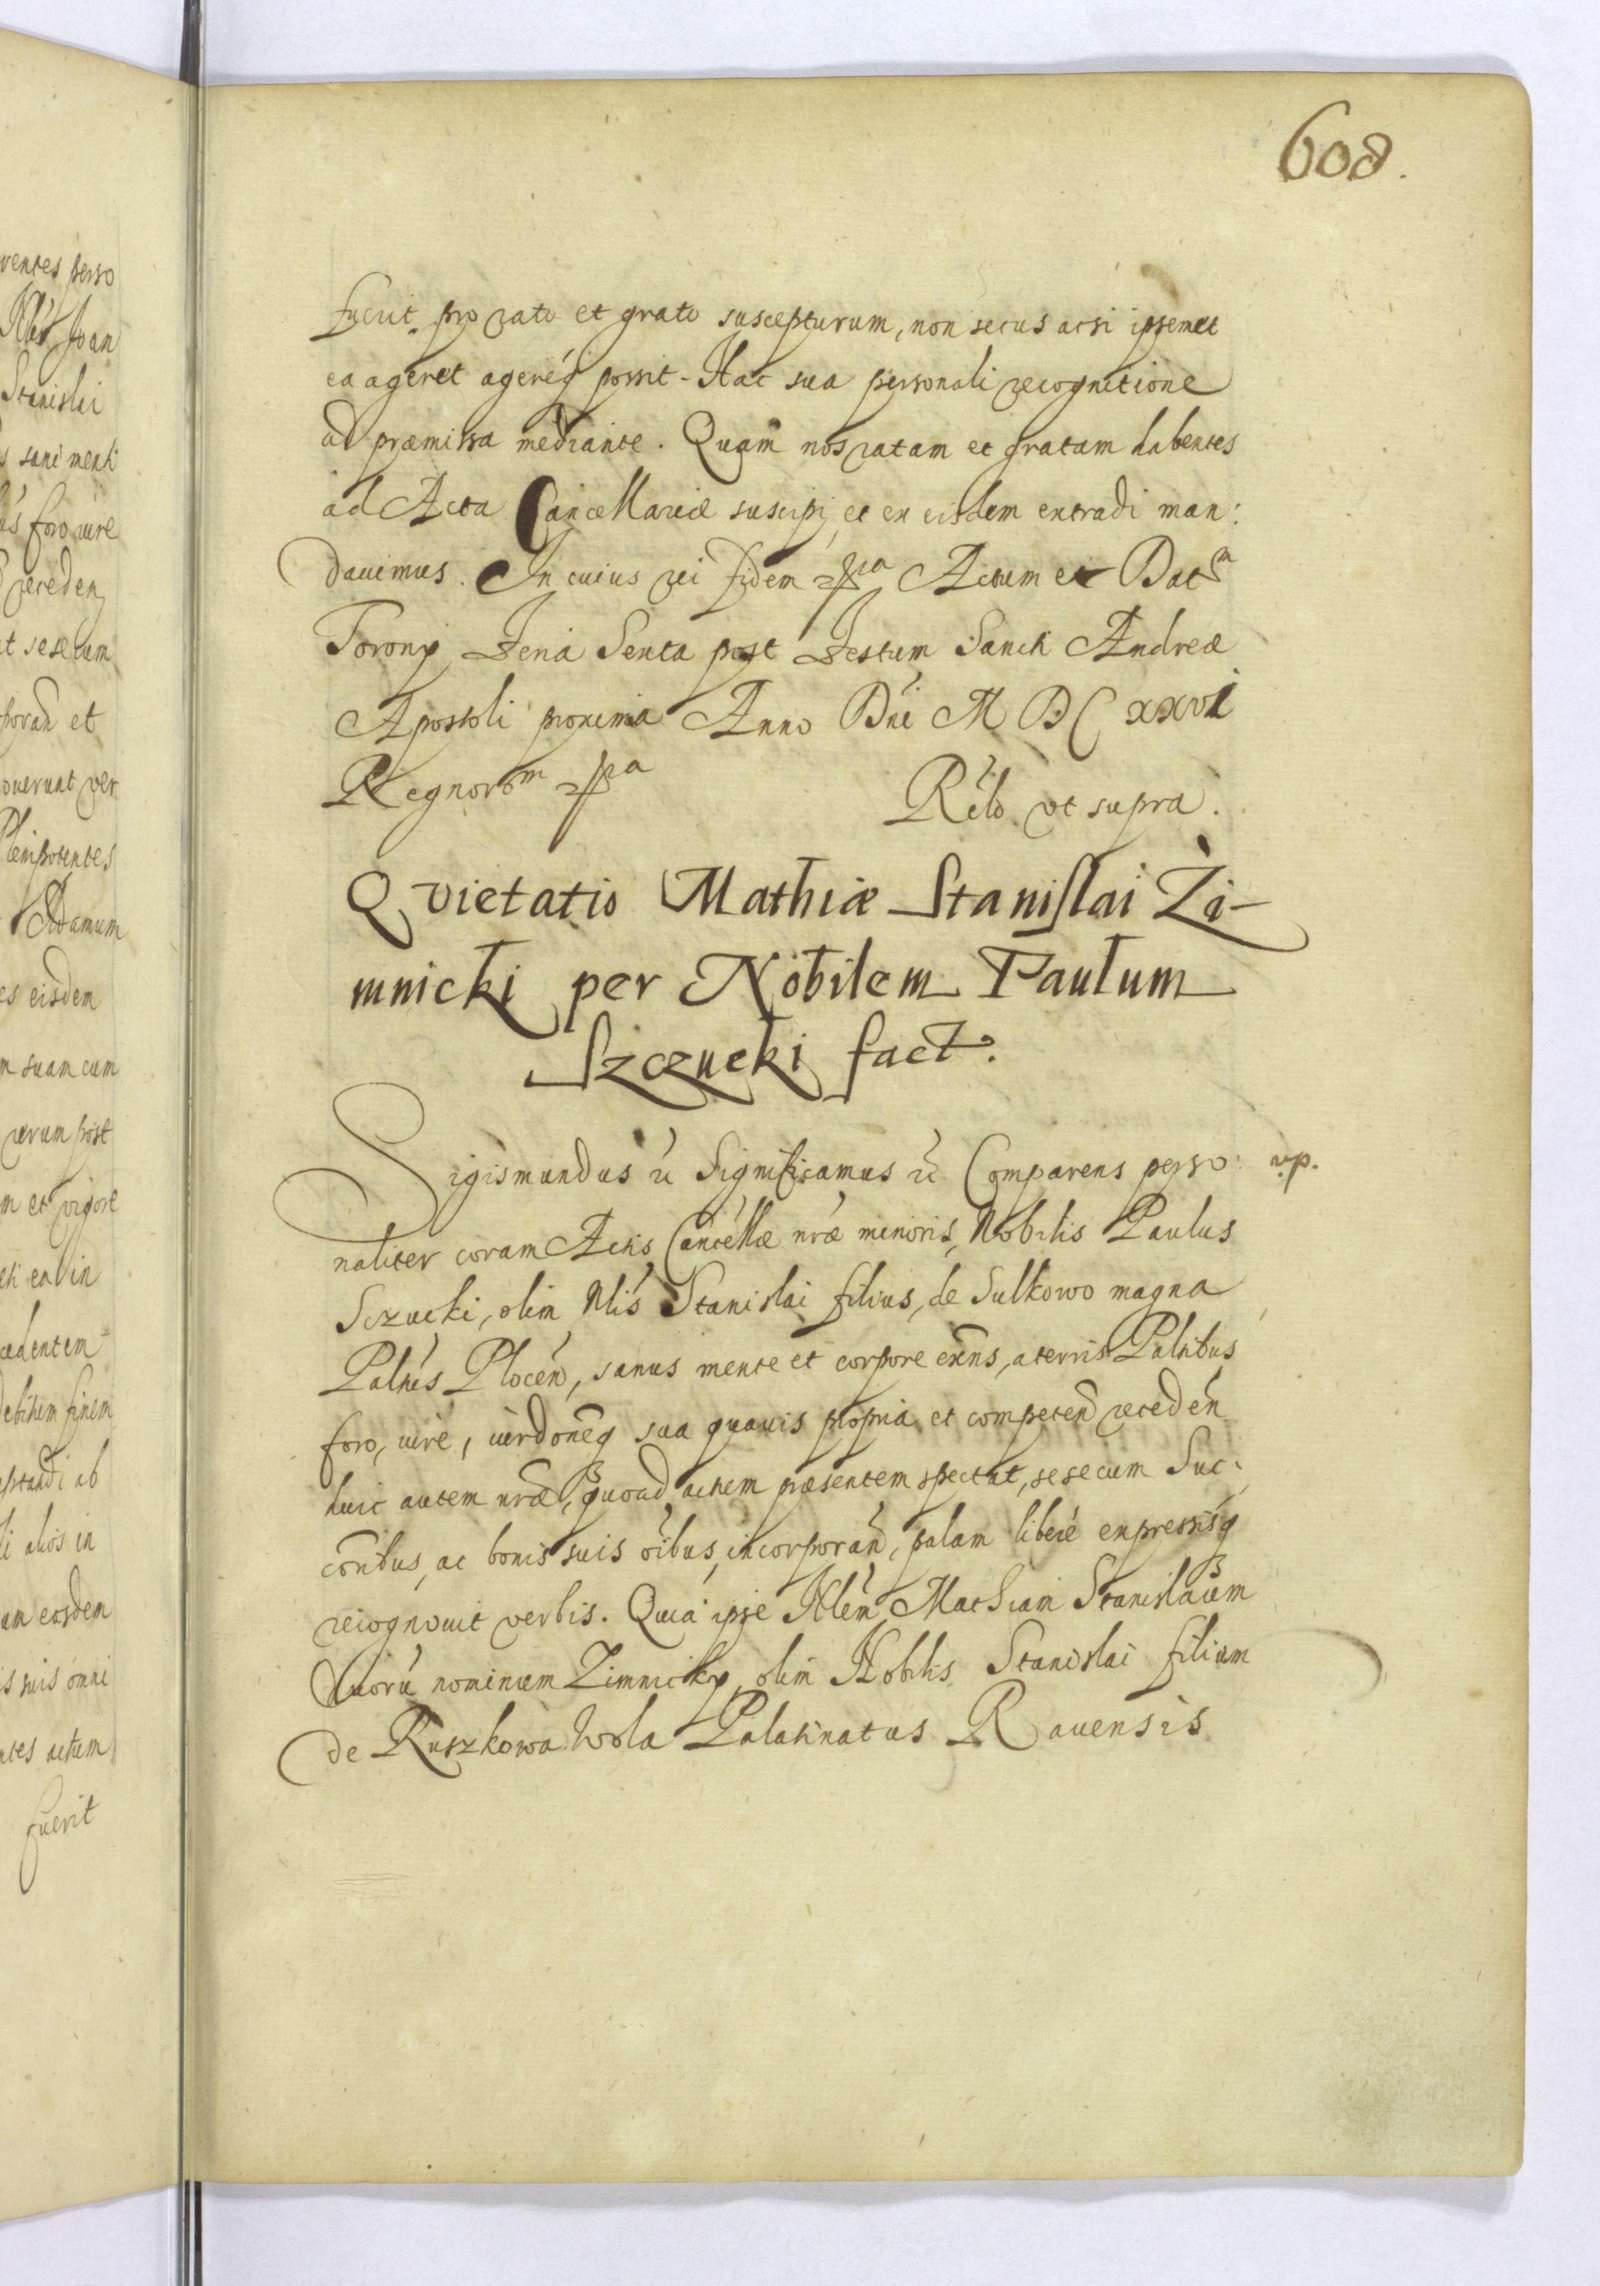 608.
fuerit, pro rato et grato suscepturum, non secus acsi ipsemet
ea ageret agereq́ possit - Hac sua personali recognitione
ad præmissa mediante. Quam nos ratam et gratam habentes
ad Acta Cancellariæ suscipi, et ex eisdem extradi man:
dauimus. In cuius rei fidem Actum et Datm
Torony Feria Sexta post Festum Sancti Andreæ
Apostoli proxima Anno Dni M D C xxvi
Regnorum
Rélo vt supra.
Qvietatio Mathiæ Stanislai Zi-
mnicki per Nobilem Paulum
Szczucki fact.
Sigismundus Significamus Comparens perso:
vp.
naliter coram Actis Cancellæ nræ minoris, Nobilis Paulus
Sczucki, olim Nlis Stanislai filius, de Sulkowo magna
Palnés Plocen, sanus mente et corpore exns, a terris Palnibus
foro, iure, iurdoneq sua quauis propria et competen receden
huic autem nræ, quoad actum præsentem spectat, sese cum Suc:
conbus, ac bonis suis oibus, incorporan, palam liberé expressisq
recognouit verbis. Quia ipse Nlem Mathiam Stanislaum
duorū nominum Zimnicky, olim Nobilis Stanislai filium
de Ruszkowa Wola Palatinatus Rauensis
ventes perso
Joan
Stanislai
sani menti
foro iure
receden
t sese cum
poran et
overunt ver
Plenipotentes
Adamum
es eisdem
m suam cum
rerum post
m et vigore
ea in
cedentem
debitum finem
ptandi ab
li alios in
um eosdem
is suis omni
ntes actum
fuerit